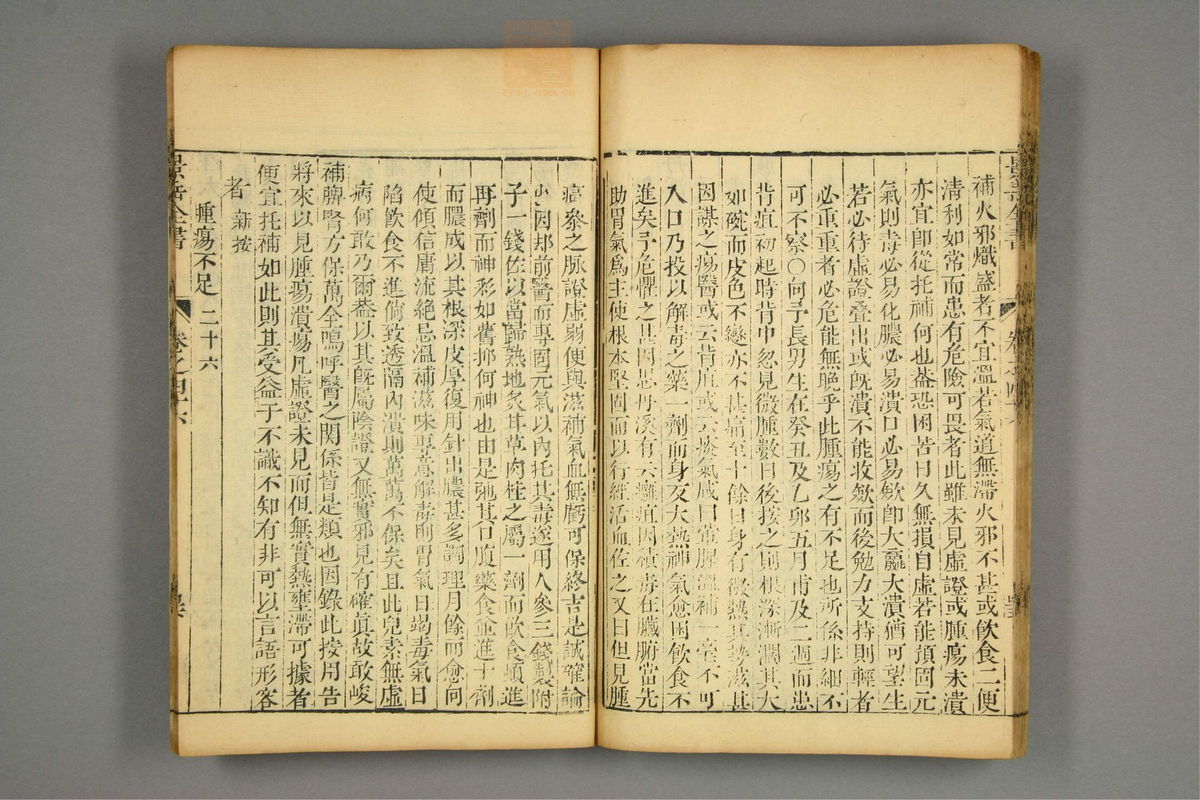 補火邪熾盛者不宜溫若氣道無滯火邪不甚或飲食二便
清利如常而患有危險可畏者此雖未見虛證或腫瘍未潰
亦宜卽從托補何也葢恐困苦日久無損自虛若能預固元
氣則毒必易化膿必易潰口必易斂卽大羸大潰猶可望生
若必待虛證叠出或旣潰不能收斂而後勉力支持則輕者
必重重者必危能無晚乎此腫瘍之有不足也所係非細不
可不察○向予長男生在癸丑及乙卯五月甫及二週而患
背疽初起時背中忽見微腫數日後按之則根深漸濶其大
如碗而皮色不變亦不甚痛至十餘日身有微熱其勢滋甚
因謀之瘍醫或云背疽或云痰氣咸曰荤腥溫補一毫不可
入口乃投以解毒之藥一劑而身反大熱神氣愈困飲食不
進矣予危懼之甚因思丹溪有云癰疽因積毒在臟腑當先
助胃氣爲主使根本堅固而以行經活血佐之又曰但見腫
痛參之脉證虛弱便與滋補氣血無虧可保終吉是誠確論
也因却前醫而專固元氣以內托其毒遂用人參三錢製附
子一錢佐以當歸熟地炙甘草肉桂之屬一劑而飲食頓進
再劑而神彩如舊抑何神也由是弛其口腹藥食並進十劑
而膿成以其根深皮厚復用針出膿甚多調理月餘而愈向
使傾信庸流絶忌溫補滋味專意解毒則胃氣日竭毒氣日
陷飲食不進倘致透隔內潰則萬萬不保矣且此兒素無虛
病何敢乃爾葢以其旣屬陰證又無實邪見有確眞故敢峻
補脾腎方保萬全嗚呼醫之関係皆是類也因錄此按用告
將來以見腫瘍潰瘍凡虛證未見而但無實熱壅滯可據者
便宜托補如此則其受益于不識不知有非可以言語形容
者 新按
腫瘍不足 二十六
景岳全書
卷之四六